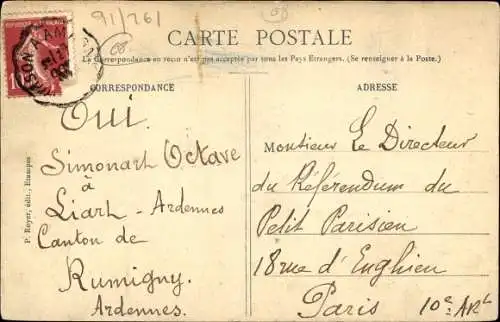 91/261
CARTE POSTALE
La Correspondance au recto n'est pas acceptée par tous les Pays Etrangers. (Se renseigner à la Poste.)
CORRESPONDANCE
Oui.
Simonart Octave
à
Liart - Ardennes
Canton de
Rumigny.
Ardennes.
P. Royer, édit., Etampes
ADRESSE
Monsieur Le Directeur
du Référendum du
Petit Parisien
18 rue d'Enghien
Paris 10e Art